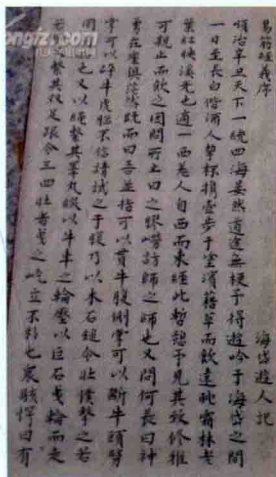 易筋經義序 海岱遊人記
順治辛丑天下一統四海晏然道途無梗予得遊吟于海岱之間
一日至長白偕酒人挈榼提壺步于室濱籍草而飲遠眺霜林老
葉紅映溪光也適一西羌人自西而東經此暫憩予見其致修雅
可親止而飲之因問所止曰之膠嶗訪師之師也又問何長曰神
勇在座與茫然既而曰吾並指可以貫牛腹側掌可以斷牛頭努
掌可以碎虎脛不信請試之于腹乃以木石鎚令壯僕擊之若
罔知也又以繩繫其睾丸綴以牛車之輪壓以巨石曳輪而走
若繫其雙足跟令三四壯者曳之屹立不移也衆駭愕曰有